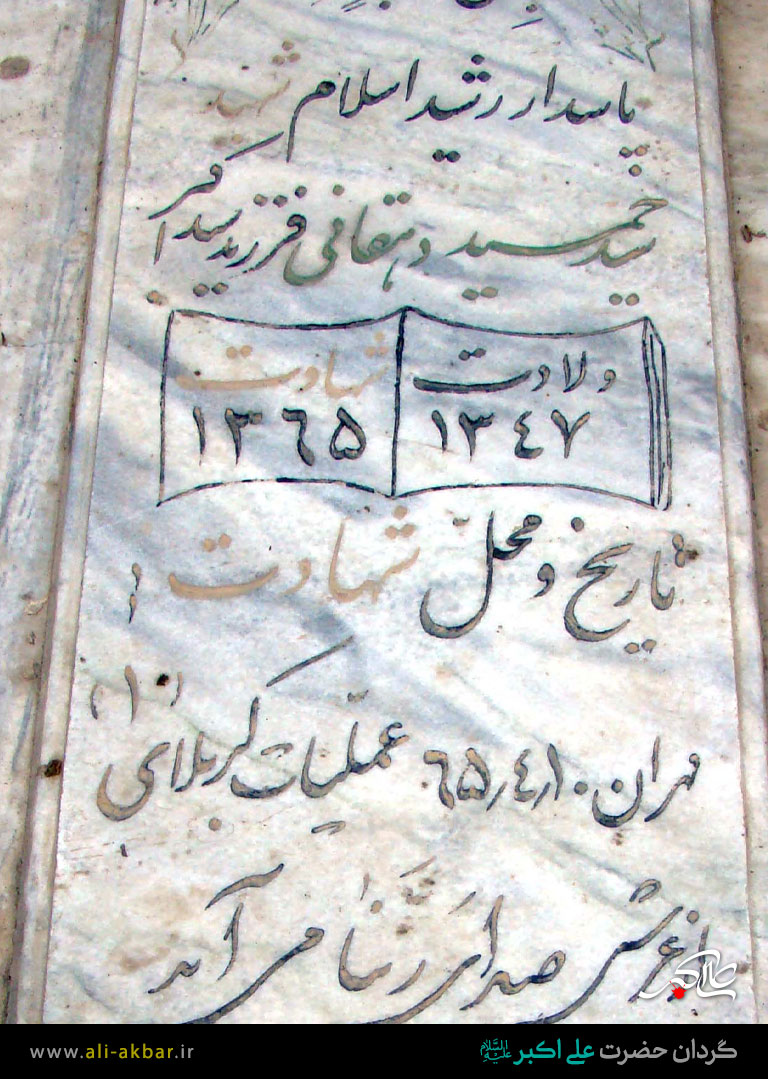 پاسدار رشید اسلام شهید
سید حمید دهقانی فرزند سید اکبر
ولادت
۱۳۴۷
شهادت
۱۳۶۵
تاریخ و محل شهادت :
مهران ۶۵/۴/۱۰ عملیات کربلای (۱)
از عرش صدای ربنا می آید
گردان حضرت علی اکبر علیه السلام
www.ali-akbar.ir